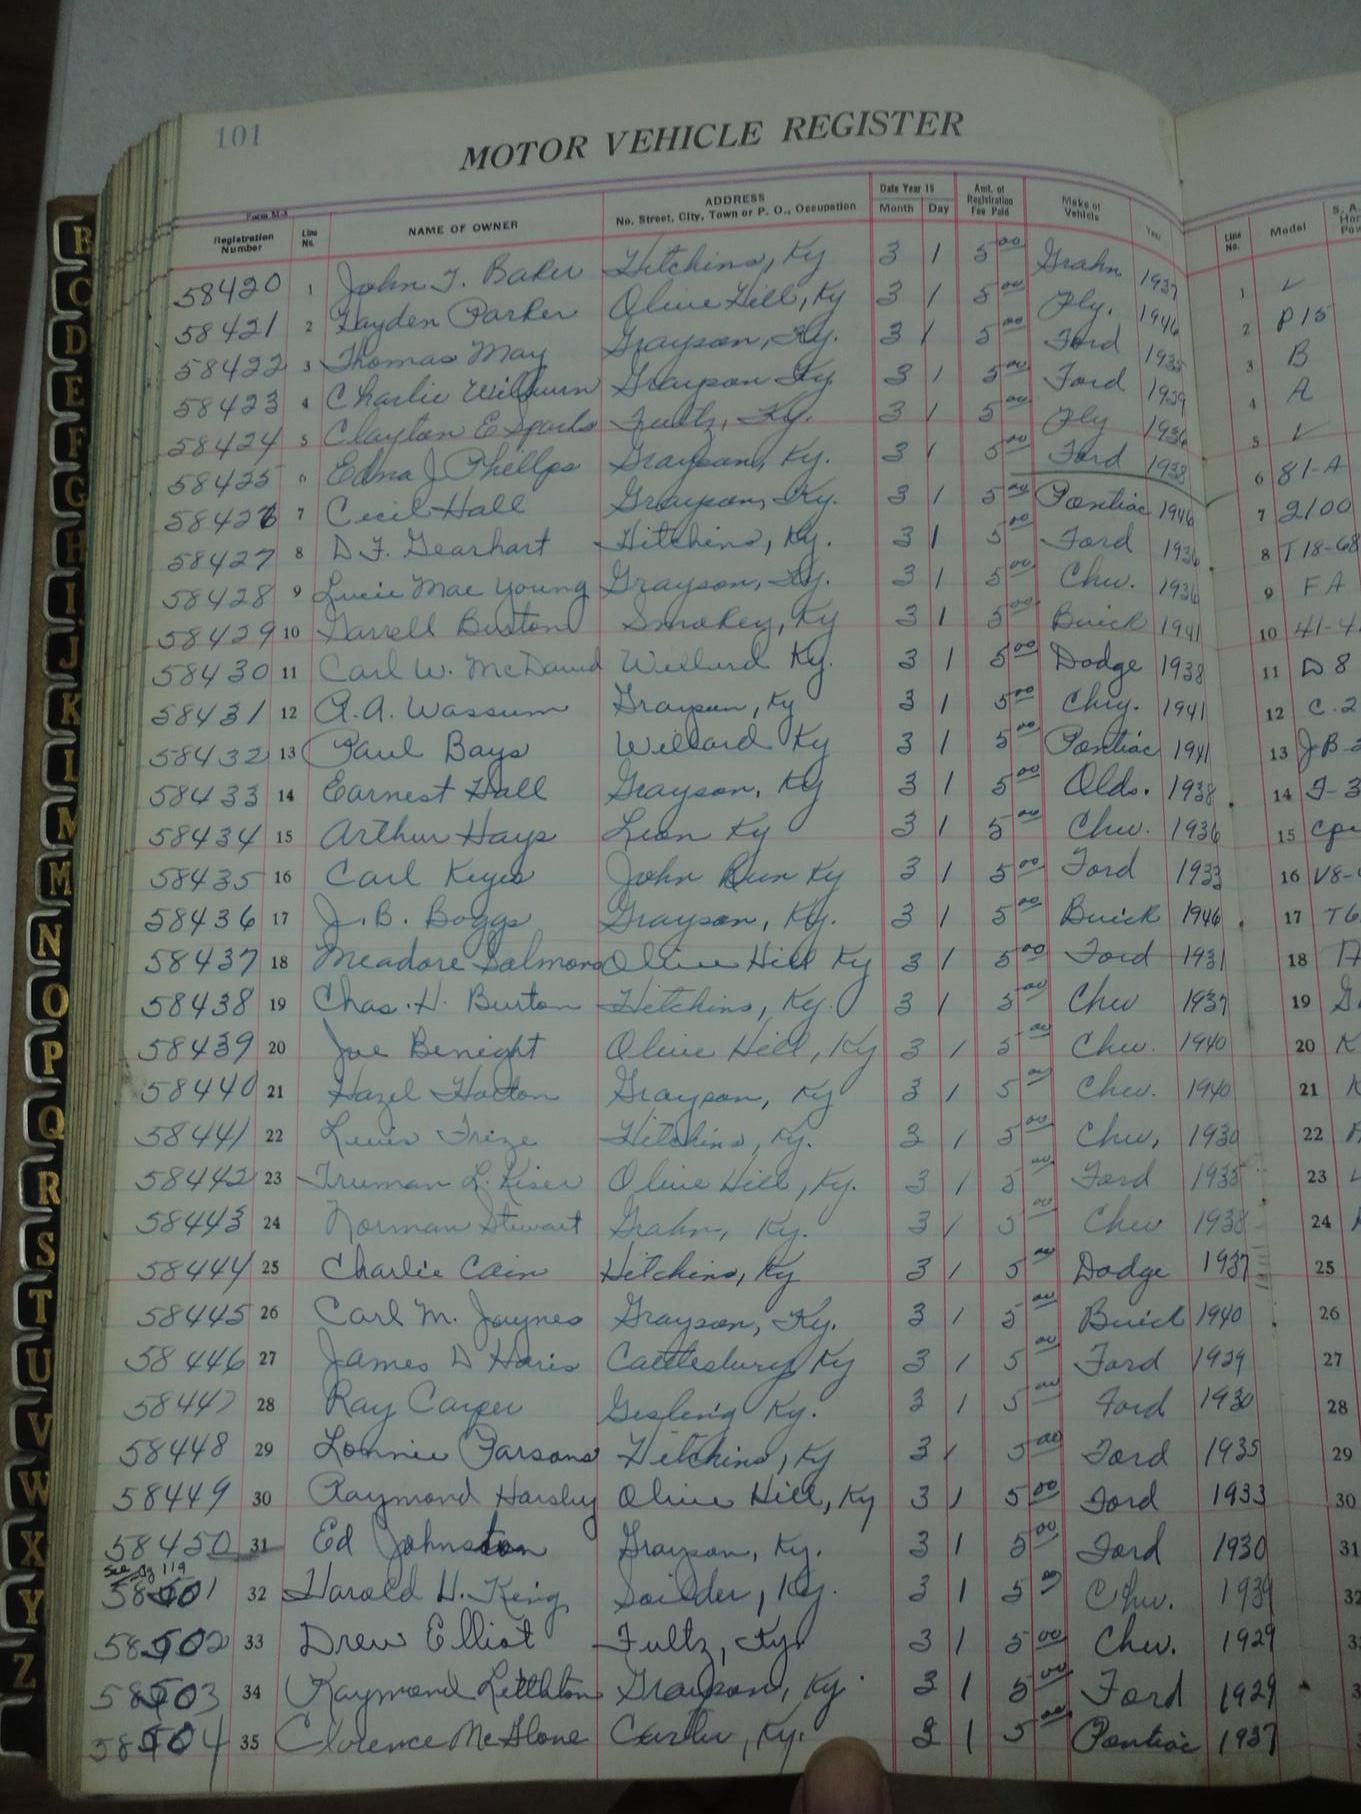 101
MOTOR VEHICLE REGISTER
Form M-3
Registration Number Line No. NAME OF OWNER ADDRESS No. Street, City, Town or P. O., Occupation Date Year 19 Month Day Amt. of Registration Fee Paid Make of Vehicle Year Line No. Model
58420 1 John T. Baker Hitchins, Ky 3 1 5 00 Grahn 1937 1 ✓
58421 2 Hayden Parker Olive Hill, Ky 3 1 5 00 Ply. 1946 2 P15
58422 3 Thomas May Grayson, Ky. 3 1 5 00 Ford 1935 3 B
58423 4 Charlie Wilburn Grayson Ky 3 1 5 00 Ford 1939 4 A
58424 5 Clayton E Sparks Fultz, Ky. 3 1 5 00 Ply 1936 5 ✓
58425 6 Edna J Phillps Grayson, Ky. 3 1 5 00 Ford 1938 6 81-A
58426 7 Cecil Hall Grayson, Ky. 3 1 5 00 Pontiac 1946 7 2100
58427 8 D.F. Gearhart Hitchins, Ky. 3 1 5 00 Ford 1936 8 T18-68
58428 9 Lucie Mae Young Grayson, Ky. 3 1 5 00 Chev. 1936 9 FA
58429 10 Garrell Burton Smokey, Ky 3 1 5 00 Buick 1941 10 41-4
58430 11 Carl W. McDavid Willard Ky. 3 1 5 00 Dodge 1938 11 D8
58431 12 A.A. Wassum Grayson, Ky 3 1 5 00 Chry. 1941 12 C.2
58432 13 Paul Bays Willard Ky 3 1 5 00 Pontiac 1941 13 JB-
58433 14 Earnest Hall Grayson, Ky 3 1 5 00 Olds. 1938 14 F-3
58434 15 Arthur Hays Leon Ky 3 1 5 00 Chev. 1936 15
58435 16 Carl Keyes John Run Ky 3 1 5 00 Ford 1933 16 V8-
58436 17 J.B. Boggs Grayson, Ky. 3 1 5 00 Buick 1946 17 T6
58437 18 Meadore Salmons Olive Hill Ky 3 1 5 00 Ford 1931 18
58438 19 Chas. H. Burton Hitchins, Ky. 3 1 5 00 Chev 1937 19 G
58439 20 Joe Benight Olive Hill, Ky 3 1 5 00 Chev. 1940 20 K
58440 21 Hazel Horton Grayson, Ky 3 1 5 00 Chev. 1940 21 K
58441 22 Lewis Frize Hitchins, Ky. 3 1 5 00 Chev, 1930 22
58442 23 Truman L. Kiser Olive Hill, Ky. 3 1 5 00 Ford 1935 23
58443 24 Norman Stewart Grahn, Ky. 3 1 5 00 Chev 1938 24
58444 25 Charlie Cain Hitchins, Ky 3 1 5 00 Dodge 1937 25
58445 26 Carl M. Jaynes Grayson, Ky. 3 1 5 00 Buick 1940 26
58446 27 James D Haris Cattlesburg Ky 3 1 5 00 Ford 1929 27
58447 28 Ray Carper Gesling Ky. 3 1 5 00 Ford 1930 28
58448 29 Lonnie Parsons Hitchins, Ky 3 1 5 00 Ford 1935 29
58449 30 Raymond Harsley Olive Hill, Ky 3 1 5 00 Ford 1933 30
58450 31 Ed Johnston Grayson, Ky. 3 1 5 00 Ford 1930 31
See Pg 119
58501 32 Harold H. King Soilder, Ky. 3 1 5 00 Chev. 1939 32
58502 33 Drew Elliot Fultz, Ky. 3 1 5 00 Chev. 1929
58503 34 Raymond Littleton Grayson, Ky. 3 1 5 00 Ford 1929
58504 35 Clarence McGlone Carter, Ky. 3 1 5 00 Pontiac 1937
B
C
D
E
F
G
H
I
J
K
L
M
M
N
O
P
Q
R
S
T
U
V
W
X
Y
Z